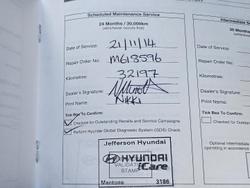 Scheduled Maintenance Service
24 Months / 30,000km
(whichever occurs first)
Date of Service: 21/11/14
Repair Order No: MG18596
Kilometres: 32197
Dealer's Signature:
Print Name: NIKKI
Tick Box To Confirm:
Checked for Outstanding Recalls and Service Campaigns
Perform Hyundai Global Diagnostic System (GDS) Check.
Jefferson Hyundai
HYUNDAI
iCare
VALIDATION
STAMP
Mentone 3186
Intermediate
Date of Service:
Repair Order No:
Kilometres:
Dealer's Signature:
Print Name:
Tick Box To Confirm:
Checked for Outstanding
Optional intermediate
operating in